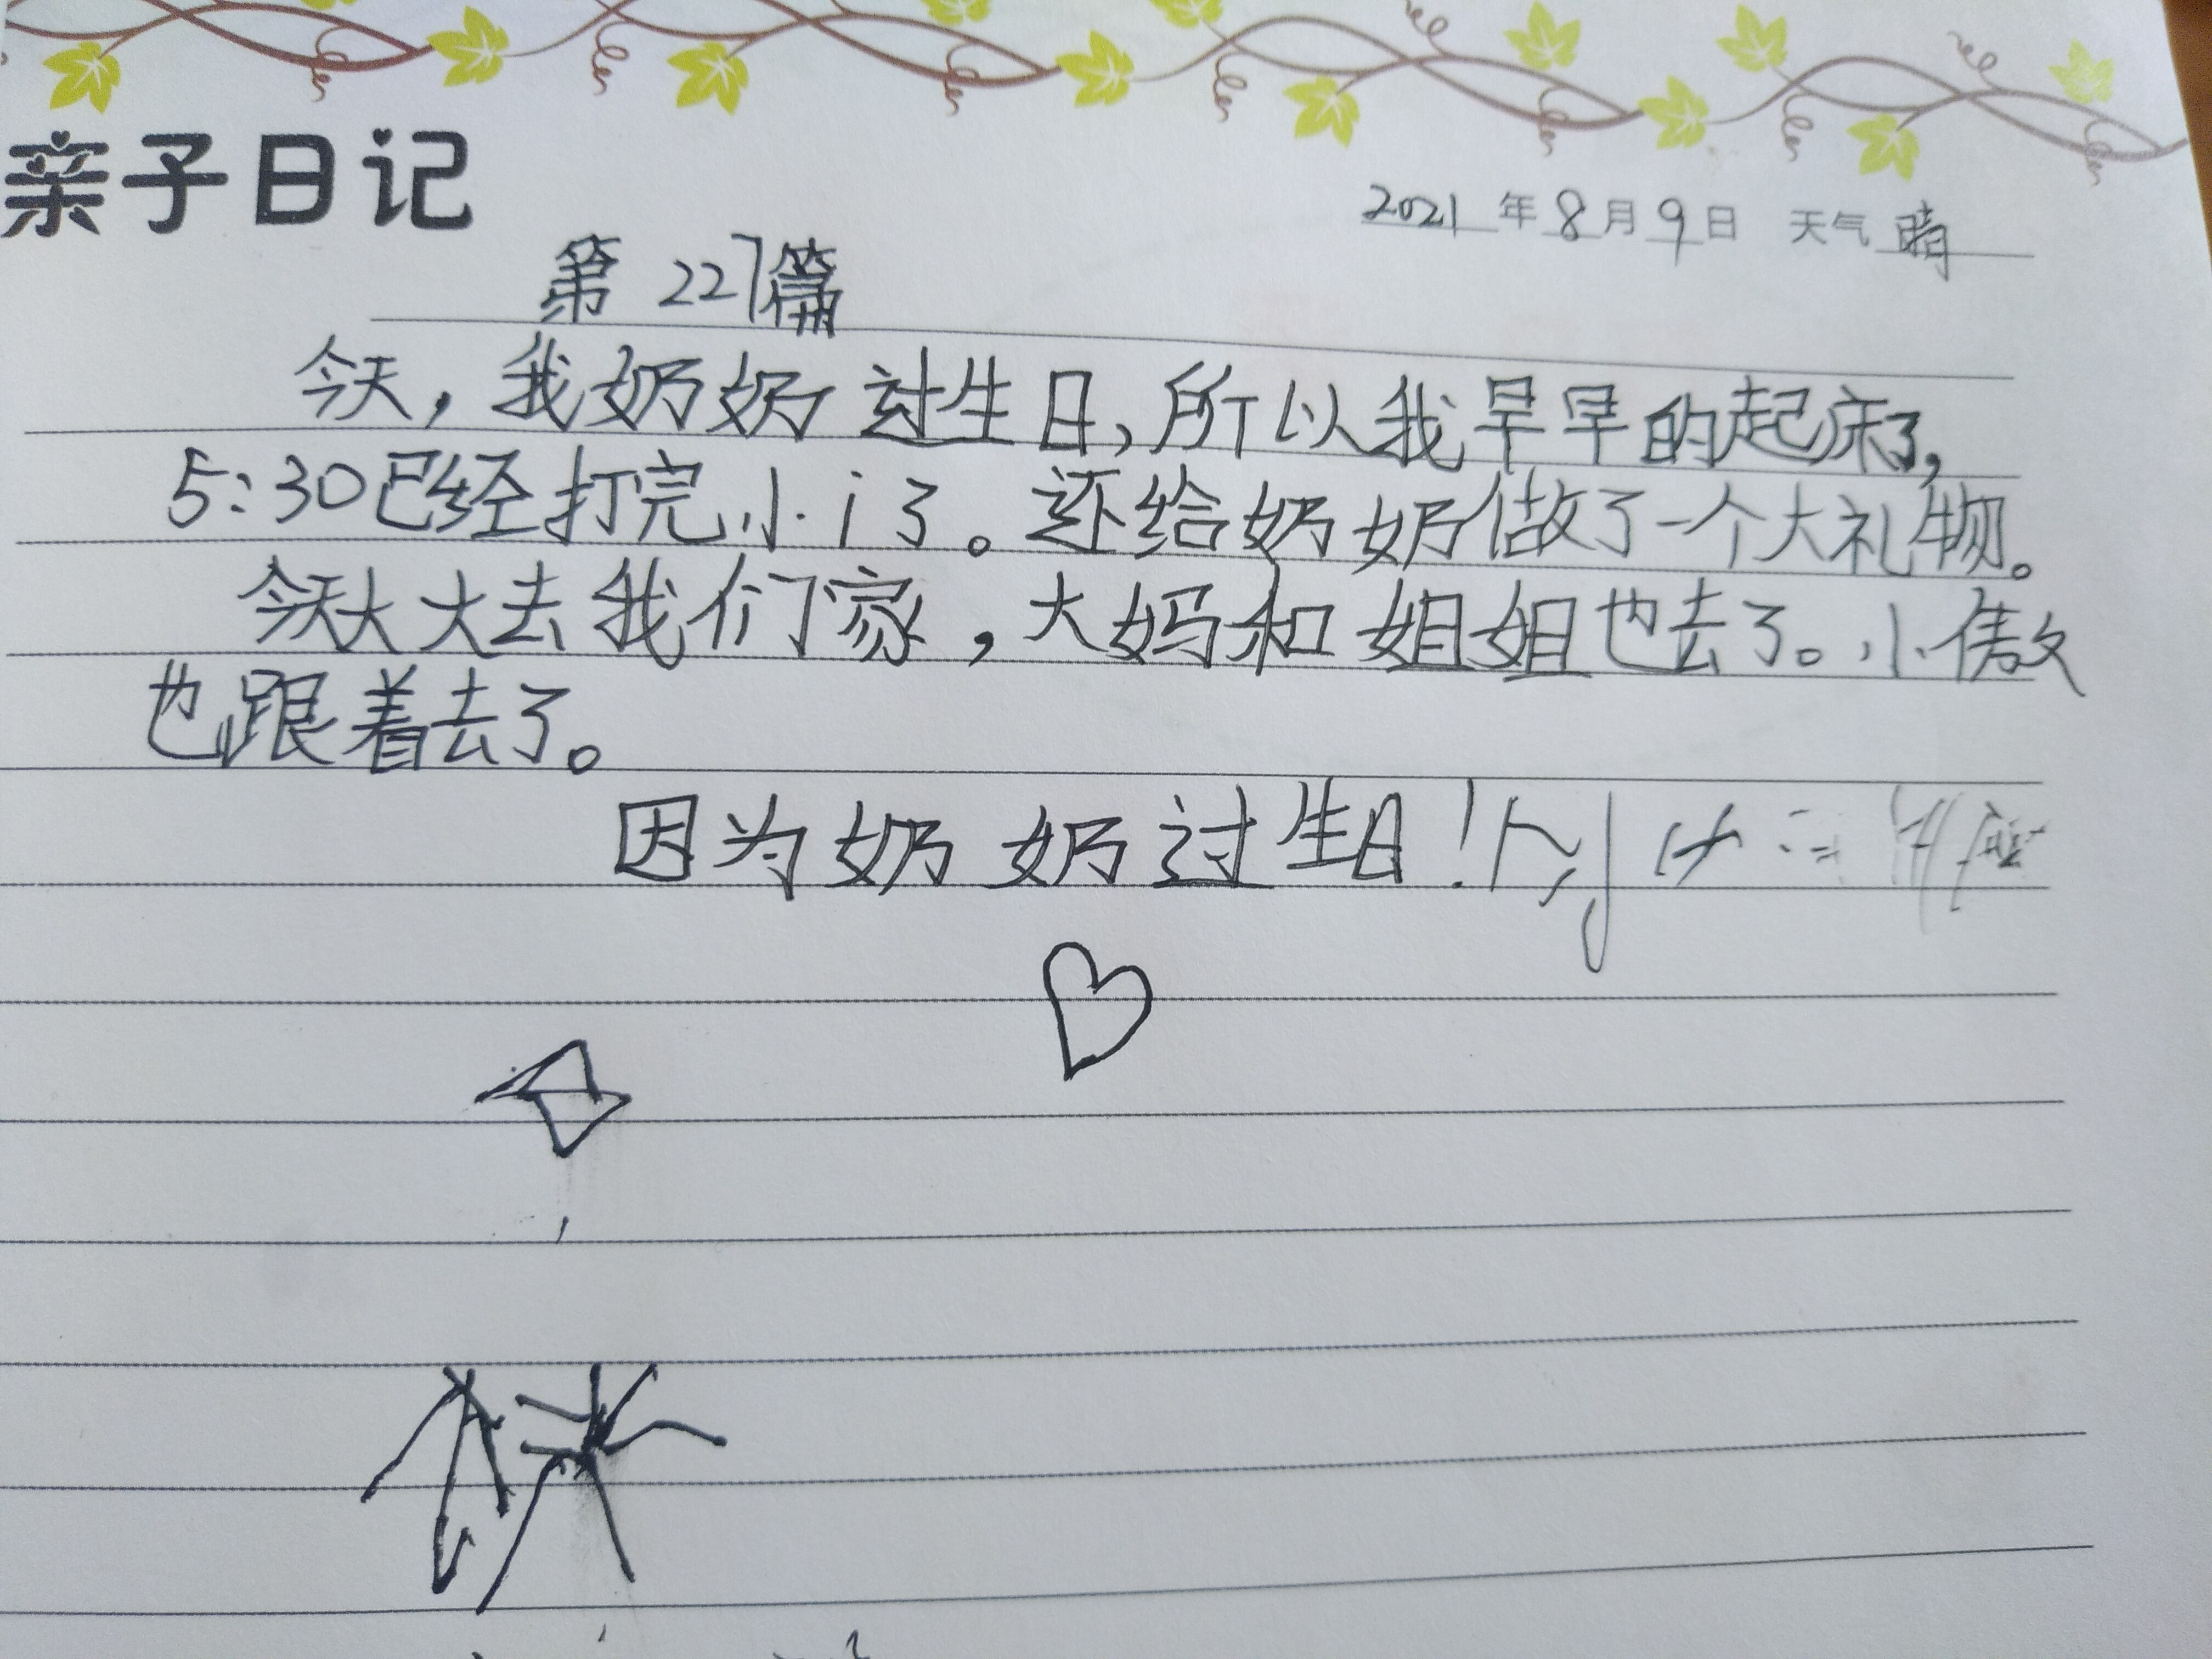 亲子日记
2021年8月9日 天气 晴
第227篇
今天，我奶奶过生日，所以我早早的起床了，
5:30已经打完小i了。还给奶奶做了一个大礼物。
今天大大去我们家，大妈和姐姐也去了。小傲
也跟着去了。
因为奶奶过生日！